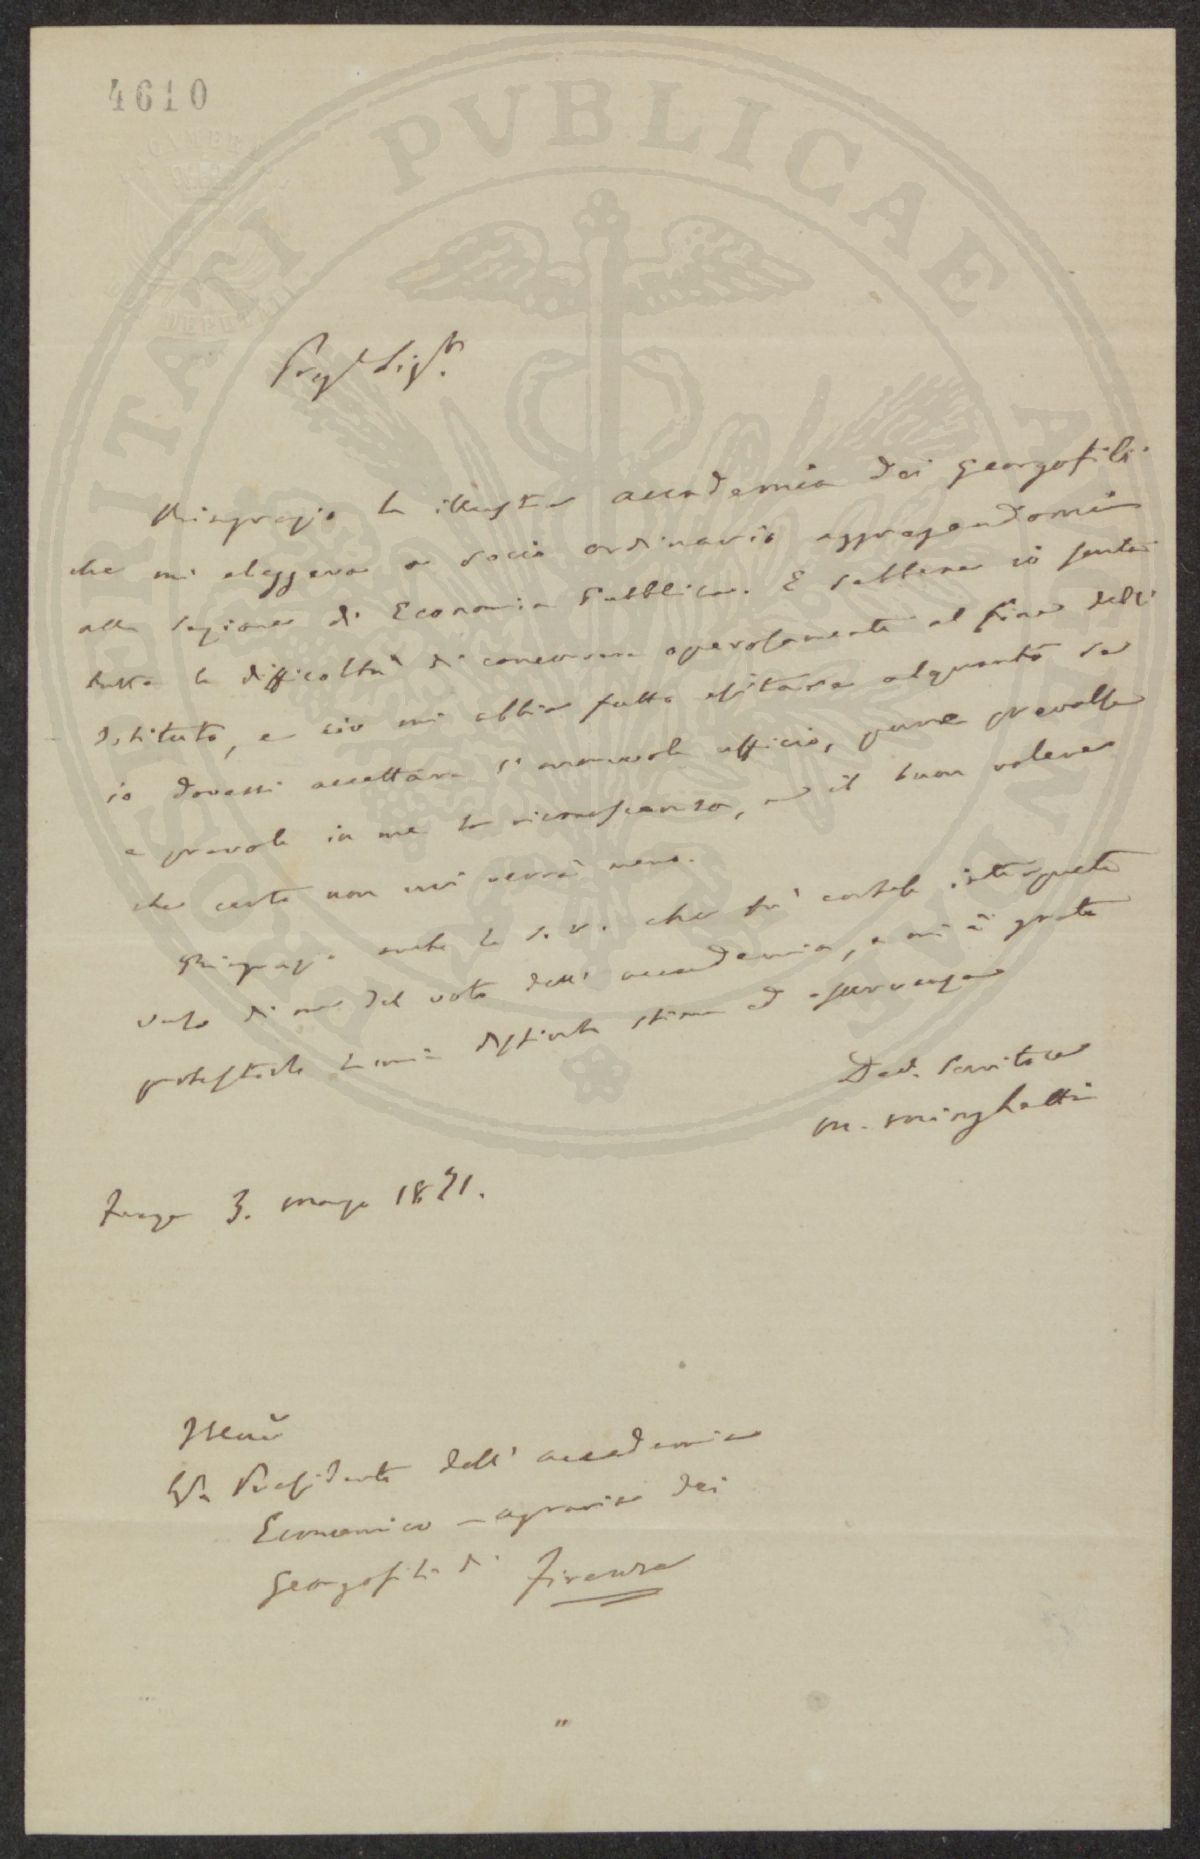 4610
CAMERA
DEPUTATI
PROSPERITATI PVBLICAE AVGENDAE
Preg. Sigr.
Ringrazio la illustre accademia dei Georgofili
che mi eleggeva a socio ordinario aggregandomi
alla sezione di Economia Pubblica. E sebbene io senta
tutta la difficoltà di concorrere operosamente al fine dell'
Istituto, e ciò mi abbia fatto esitare alquanto se
io dovessi accettare l'onorevole ufficio, pure prevalse
e prevale in me la riconoscenza, ed il buon volere
che certo non mi verrà meno.
Ringrazio anche la S. V. che fu cortese interprete
verso di me del voto dell'accademia, e mi è grato
protestarle la mia distinta stima ed osservanza
Dev. Servitore
M. Minghetti
Firenze 3. marzo 1871.
Illmo
Sig. Presidente dell'accademia
Economico-agraria dei
Georgofili di Firenze